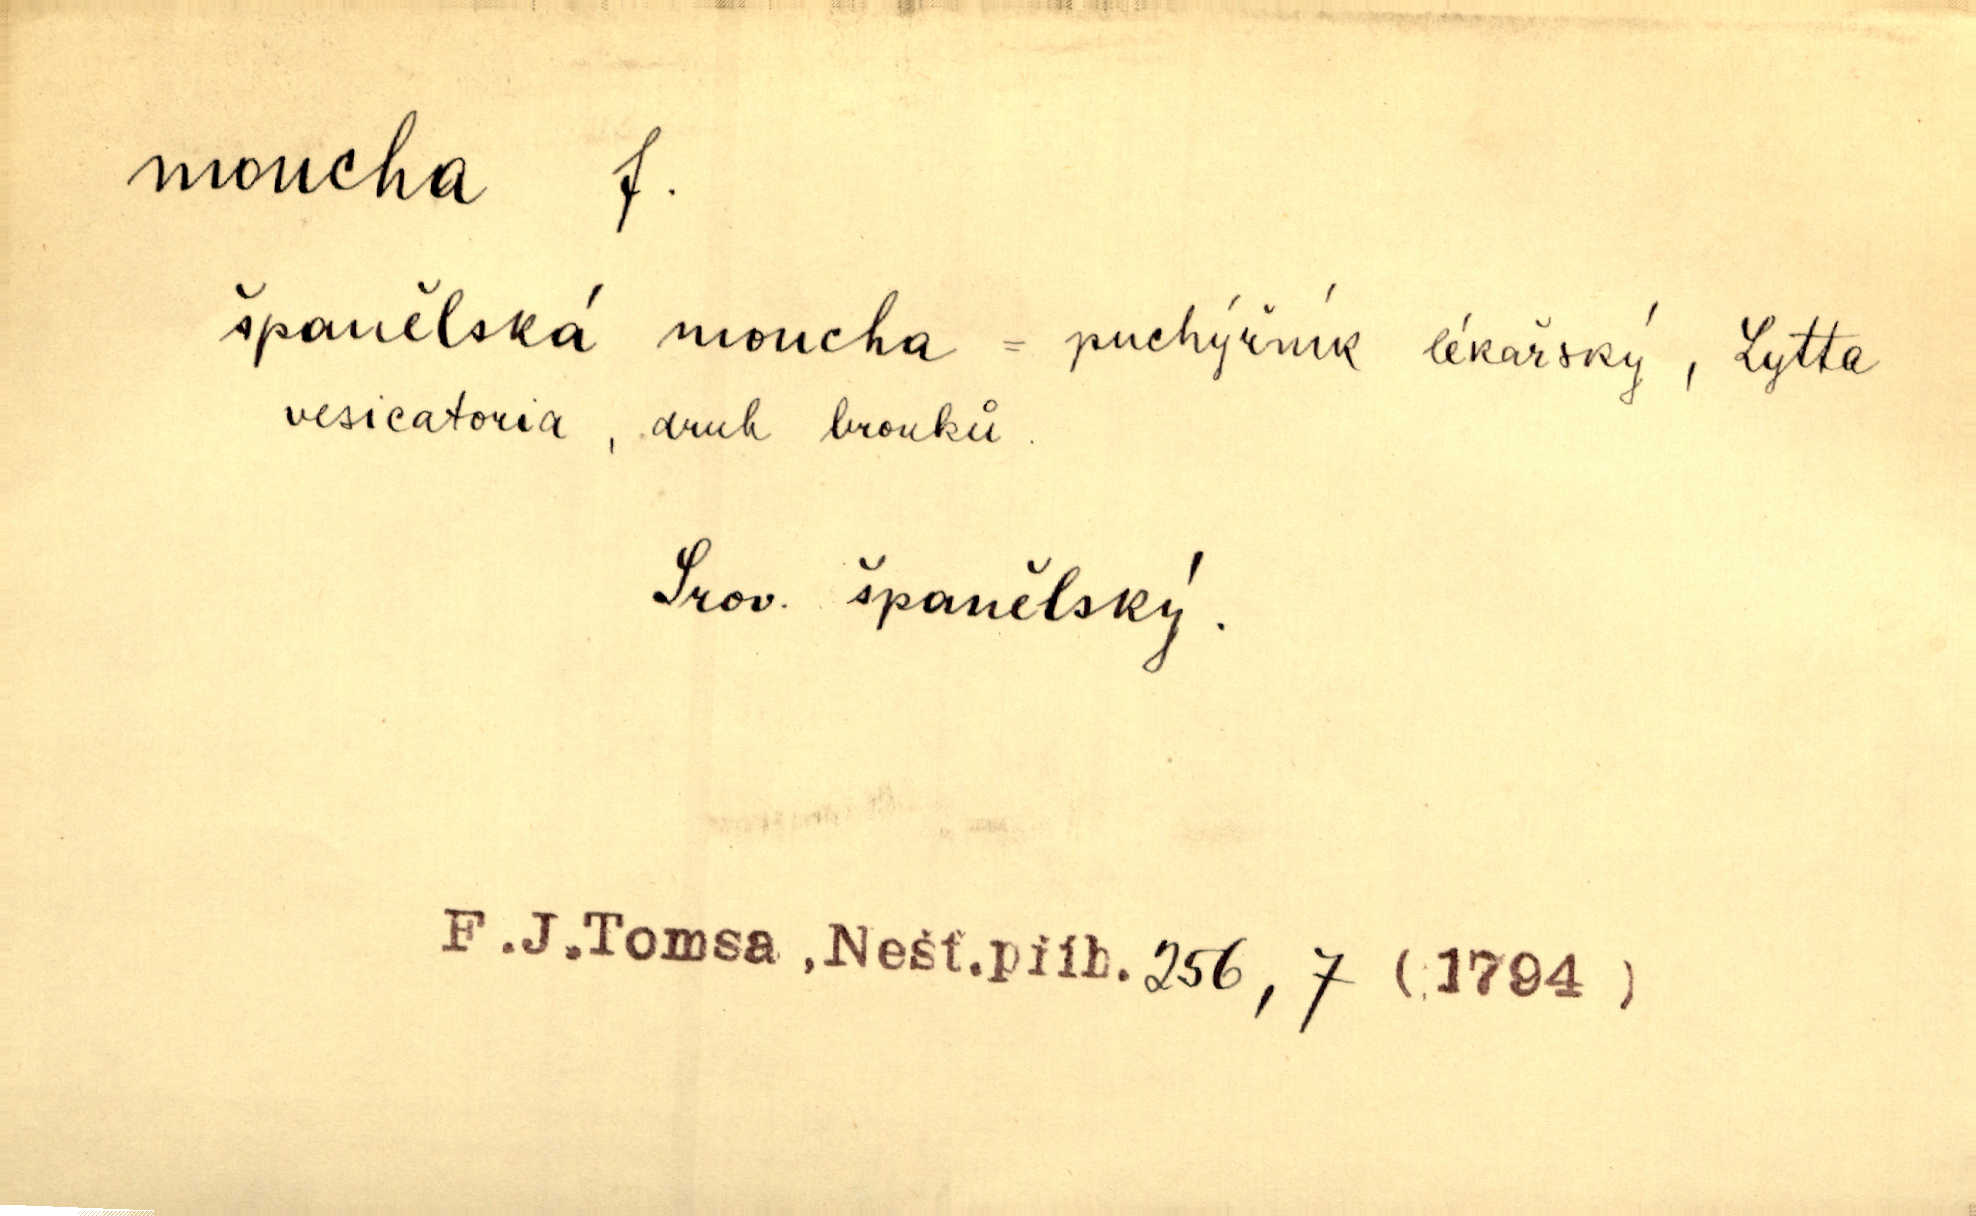 moucha f.
španělská moucha = puchýřník lékařský, Lytta
vesicatoria, druh brouků.
Srov. španělský.
F.J.Tomsa,Nešť.příb. 256, 7 (1794)